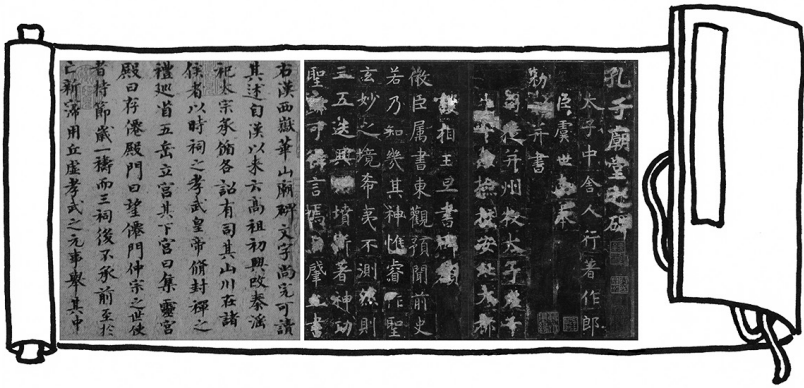 孔子廟堂之碑
太子中舍人行著作郎
臣虞世南奉
勅撰并書
司徒并州牧太子左千
牛率兼檢校安北大都
護相王旦書碑額
微臣属書東觀預聞前史
若乃知幾其神惟睿作聖
玄妙之境希夷不測然則
三五迭興典墳斯著神功
聖迹可得言焉自肇書
右漢西嶽華山廟碑文字尚完可讀
其述自漢以来云高祖初興改秦滛
祀太宗承循各詔有司其山川在諸
侯者以時祠之孝武皇帝脩封禪之
禮巡省五岳立宫其下宫曰集靈宫
殿曰存僊殿門曰望僊門仲宗之世使
者持節歲一禱而三祠後不承前至於
亡新寖用丘虚孝武之元事舉其中